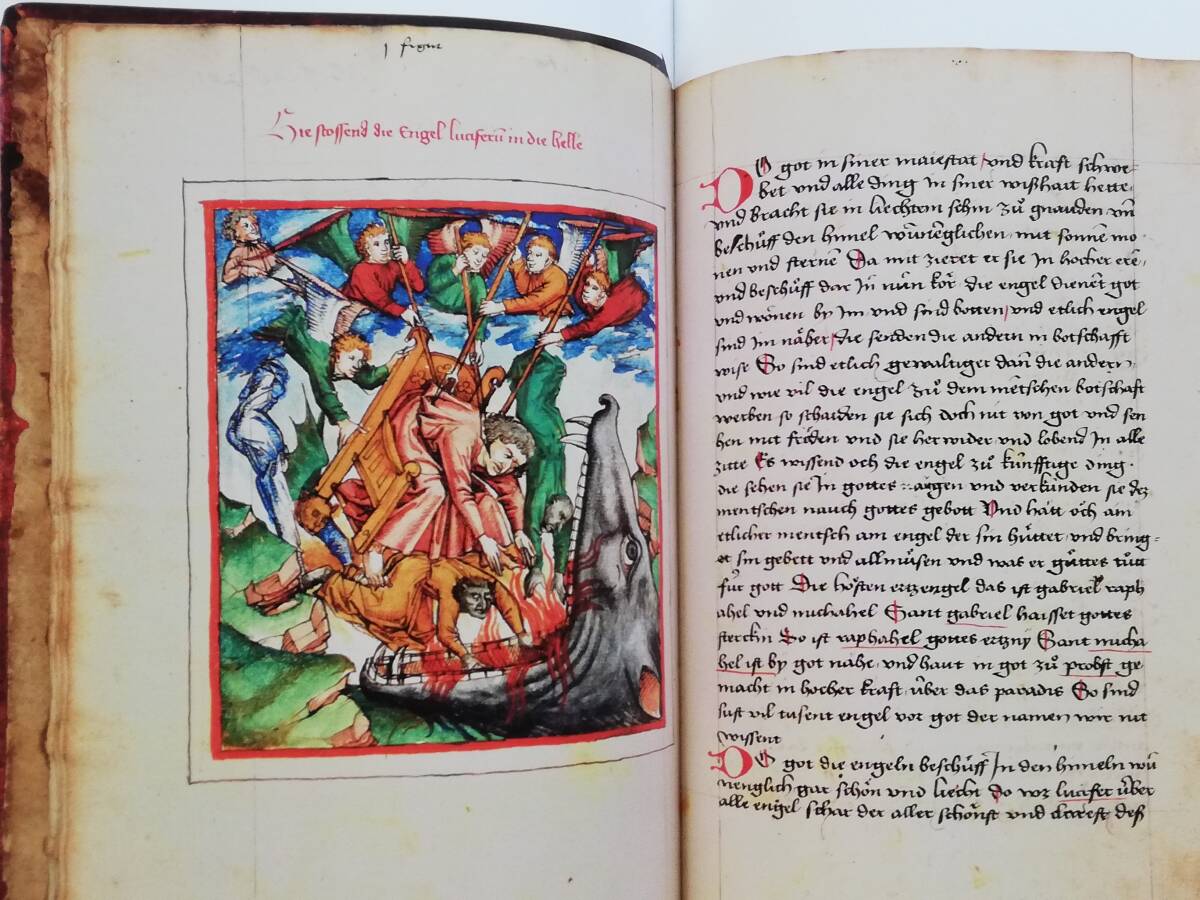 j figur
Hie stossend die Engel luciferū in die helle
DO got in siner maiestat vnd kraft schwe-
bet vnd alle ding in siner wißhait hette
vnd bracht sie in liechtem schin zů gnauden vn̄
beschůff den himel mit sonnen mo-
nen vnd sterne Da mit zieret er sie In hocher ere
vnd beschůff dar In nün kör die engel dienēt got
vnd wonen by Im vnd sind botten vnd etlich engel
sind Im näher die senden die andern in botschafft
wise So sind etlich gewaltiger dañ die andern
vnd wie vil die engel zů dem mētschen botschaft
werben so schaiden sie sich doch nit von got vnd sen
hen mit fröden vnd sie her wider vnd lobend In alle
zitte Es wissend och die engel zů künfftige ding
die sehen sie In gottes augen vnd verkünden sie dez
mentschen nauch gottes gebott Vnd hatt och am
etlicher mentsch ain engel der sin hüttet vnd bring-
et sin gebett vnd allmůsen vnd was er gůttes tůtt
für gott Die hösten ertzengel das ist gabriel raph
ahel vnd michahel Sant gabriel haisset gottes
sterckin So ist raphahel gottes ertzny Sant micha
hel ist by got nähe vnd haut in got zů probst ge
macht in hocher kraft über das paradis So sind
sust vil tusent engel vor got der namen wir nit
wissent
DO got die engeln beschůff In den himeln wü
nenglich gar schön vnd liecht do voz lucifer über
alle engel schar der aller schönst vnd deß